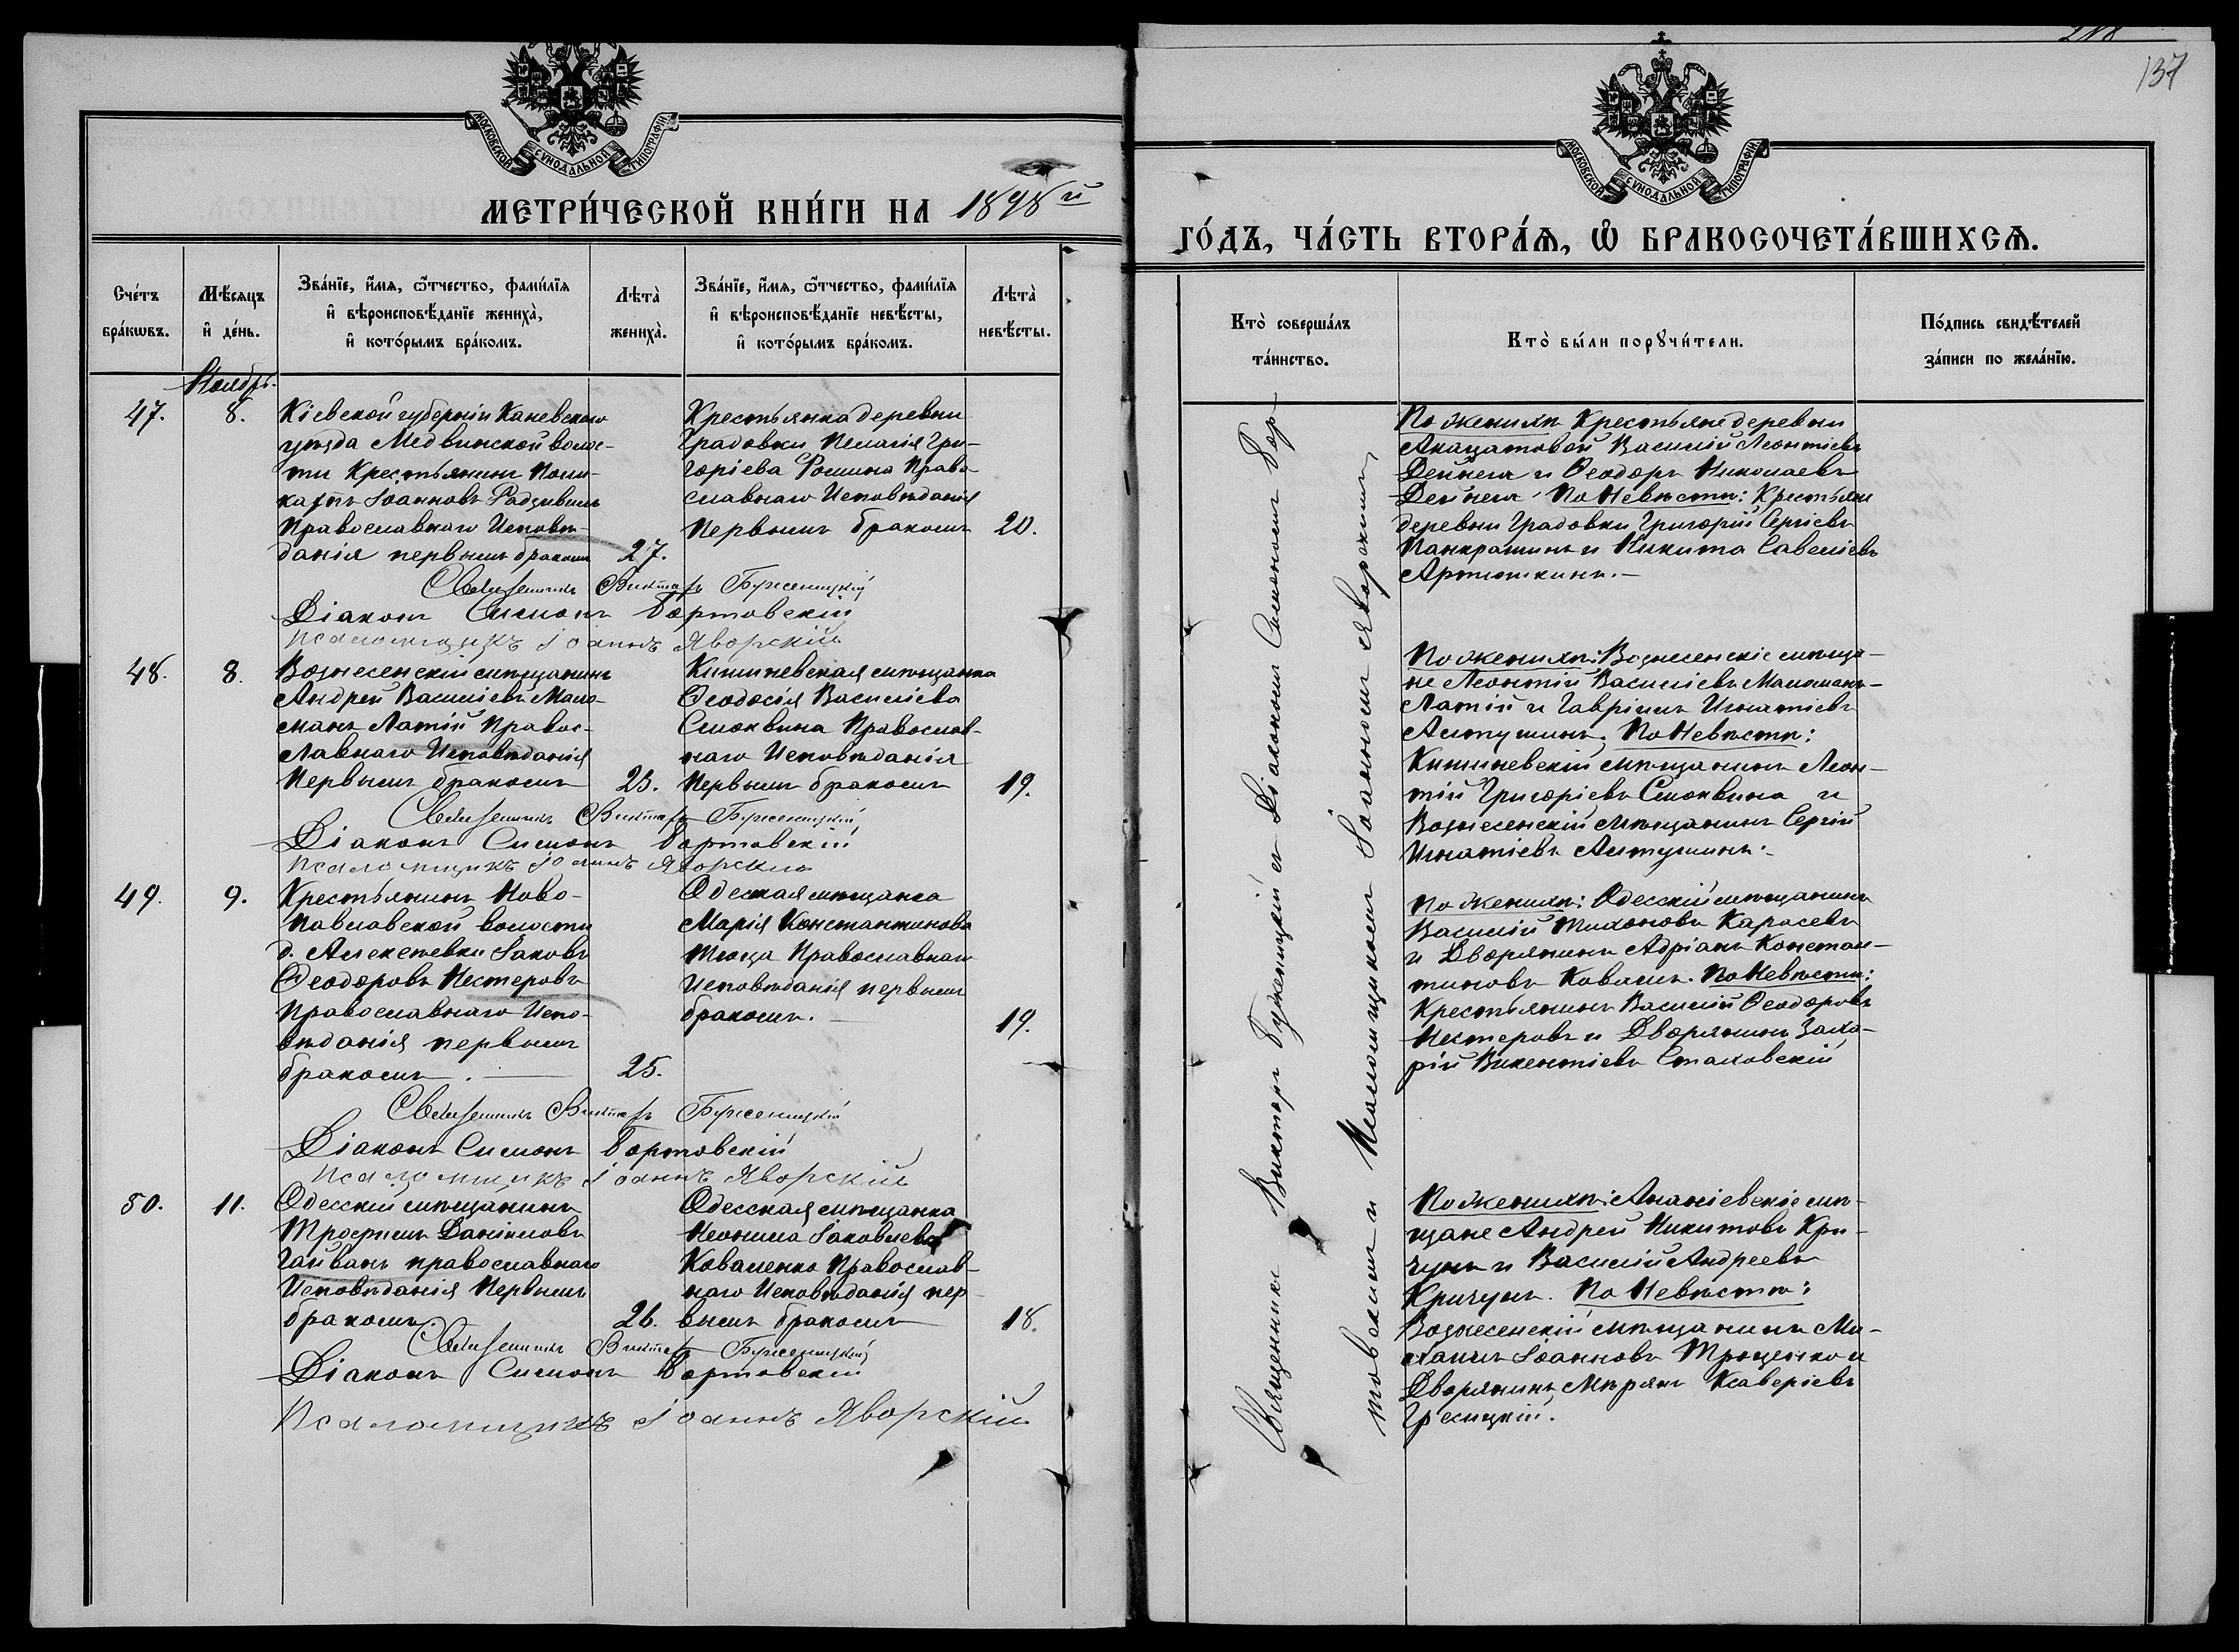 218
137
МОСКОВСКОЙ СѴНОДАЛЬНОЙ ТИПОГРАФІИ
МЕТРИ́ЧЕСКОЙ КНИ́ГИ НА 1898й
Сче́тъ бра́кωвъ.
Мѣ́сяцъ и҆ де́нь.
Зва́нїе, и҆́мѧ, ѻ҆́тчество, фами́лїѧ
и҆ вѣроисповѣ́данїе жениха̀,
и҆ кото́рымъ бра́комъ.
Лѣта̀ жениха̀.
Зва́нїе, и҆́мѧ, ѻ҆́тчество, фами́лїѧ
и҆ вѣроисповѣ́данїе невѣ́сты,
и҆ кото́рымъ бра́комъ.
Лѣта̀ невѣ́сты.
Ноябрь.
47.
8.
Кіевской губерніи Каневскаго
уѣзда Медвинской волос-
ти Крестьянинъ Поли-
карпъ Іоанновъ Радзивилъ
Православнаго Исповѣ-
данія первымъ бракомъ
27.
Крестьянка деревни
Градовки Пелагія Гри-
горіева Ромина Право-
славнаго Исповѣданія
Первымъ бракомъ
20.
Священникъ Викторъ Бужениці́й
Діаконъ Симонъ Бортовскій
Псаломщикъ Іоаннъ Яворскій
48.
8.
Вознесенскій мѣщанинъ
Андрей Василіевъ Мало-
манъ Латій Правос-
лавнаго Исповѣданія
Первымъ бракомъ
25.
Кишиневская мѣщанка
Ѳеодосія Василіева
Смоквина Православ-
наго Исповѣданія
Первымъ бракомъ
19.
Священникъ Викторъ Буженицкій
Діаконъ Симонъ Бортовскій
Псаломщикъ Іоаннъ Яворскій
49.
9.
Крестьянинъ Ново-
Павловской волости
д. Алексѣевки Іаковъ
Ѳеодоровъ Нестеровъ
Православнаго Испо-
вѣданія первымъ
бракомъ.
25.
Одесская мѣщанка
Марія Константинова
Тюца Православнаго
Исповѣданія первымъ
бракомъ.
19.
Священникъ Викторъ Буженицкій
Діаконъ Симонъ Бортовскій
Псаломщикъ Іоаннъ Яворскій
50.
11.
Одесскій мѣщанинъ
Трофимъ Даніиловъ
Гайванъ православнаго
Исповѣданія Первымъ
бракомъ
26.
Одесская мѣщанка
Неонила Іаковлева
Коваленко Православ-
наго Исповѣданія пер-
вымъ бракомъ
18.
Священникъ Викторъ Буженицкій
Діаконъ Симонъ Бортовскій
Псаломщикъ Іоаннъ Яворскій
МОСКОВСКОЙ СѴНОДАЛЬНОЙ ТИПОГРАФІИ
ГО́ДЪ, ЧА́СТЬ ВТОРА́Ѧ, Ѽ БРАКОСОЧЕТА́ВШИХСѦ.
Кто̀ соверша́лъ
та́инство.
Кто̀ бы́ли порꙋчи́тели.
По́дпись свидѣ́телей
за́писи по жела́нїю.
Священникъ Викторъ Буженицкій съ Діакономъ Симономъ Бор-
товскимъ и Псаломщикомъ Іоанномъ Яворскимъ
По женихѣ Крестьяне деревни
Акацатовой Василій Леонтіевъ
Дейнега и Ѳеодоръ Николаевъ
Дейнега. По Невѣстѣ: Крестьяне
деревни Градовки Григорій Сергіевъ
Панкрашинъ и Никита Савеліевъ
Артюшкинъ.
По женихѣ: Вознесенскіе мѣща-
не Леонтій Василіевъ Маломанъ-
Латій и Гавріилъ Игнатіевъ
Алтушинъ. По Невѣстѣ:
Кишиневскій мѣщанинъ Леон-
тій Григоріевъ Смоквина и
Вознесенскій мѣщанинъ Сергій
Игнатіевъ Алтушинъ.
По женихѣ: Одесскій мѣщанинъ
Василій Тихоновъ Карасевъ
и Дворянинъ Адріанъ Констан-
тиновъ Коваль. По Невѣстѣ:
Крестьянинъ Василій Ѳеодоровъ
Нестеровъ и Дворянинъ Заха-
рій Викентіевъ Стаховскій
По женихѣ: Ананіевскіе мѣ-
щане Андрей Никитовъ Кри-
чунъ и Василій Андреевъ
Кричунъ. По Невѣстѣ:
Вознесенскій мѣщанинъ Ми-
хаилъ Іоанновъ Троценко и
Дворянинъ Ксаверіевъ